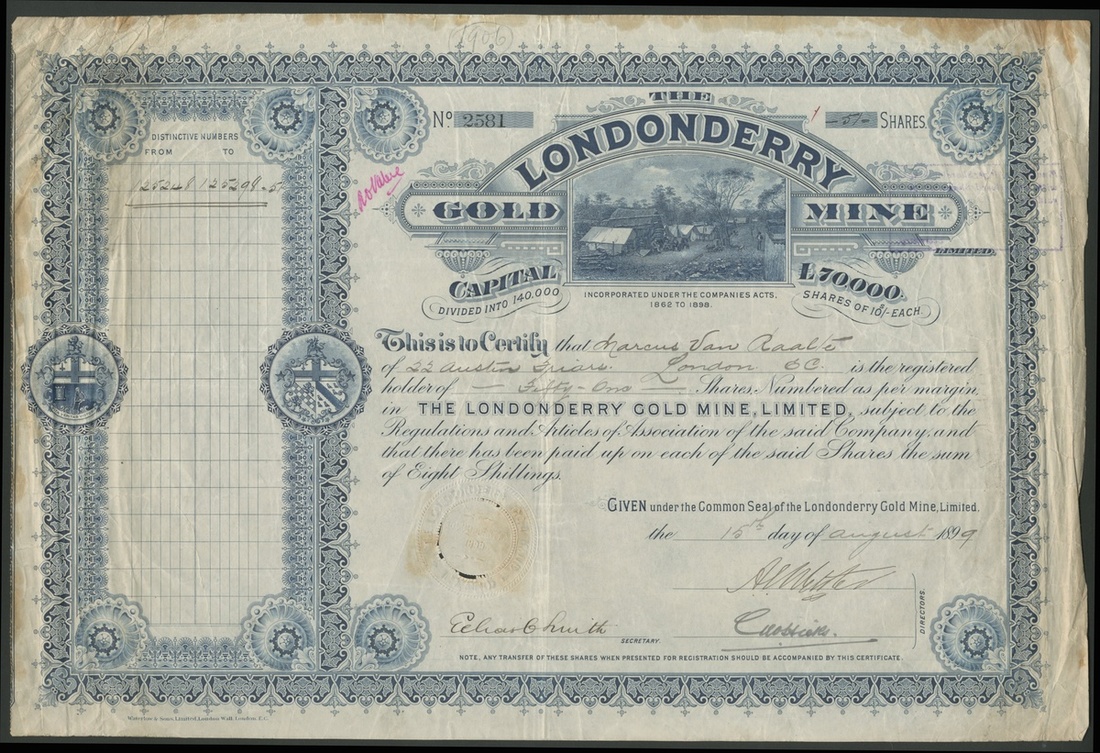 1906
DISTINCTIVE NUMBERS
FROM TO
125248 125298
No value
No. 2581
-51- SHARES.
THE
LONDONDERRY
GOLD MINE
LIMITED.
CAPITAL £70000.
DIVIDED INTO 140,000 SHARES OF 10/- EACH.
INCORPORATED UNDER THE COMPANIES ACTS,
1862 TO 1898.
This is to Certify that Marcus Van Raalte
of 22 Austin Friars. London EC. is the registered
holder of — Fifty-One — Shares, Numbered as per margin,
in THE LONDONDERRY GOLD MINE, LIMITED, subject to the
Regulations and Articles of Association of the said Company, and
that there has been paid up on each of the said Shares the sum
of Eight Shillings.
GIVEN under the Common Seal of the Londonderry Gold Mine, Limited.
the 15th day of August 1899
DIRECTORS.
SECRETARY.
NOTE, ANY TRANSFER OF THESE SHARES WHEN PRESENTED FOR REGISTRATION SHOULD BE ACCOMPANIED BY THIS CERTIFICATE.
Waterlow & Sons Limited, London Wall, London. E.C.